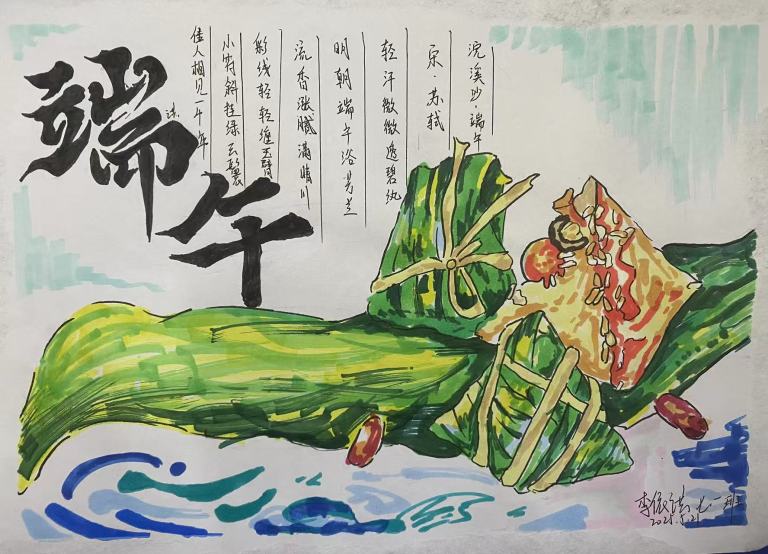 端午
浣溪沙·端午
宋·苏轼
轻汗微微透碧纨
明朝端午浴芳兰
流香涨腻满晴川
彩线轻轻缠玉臂
小符斜挂绿云鬟
佳人相见一千年
李 七一班